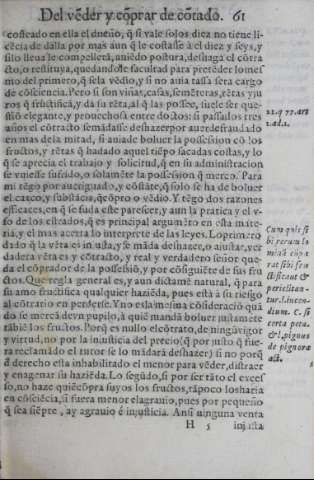 Del vẽder y cõprar de cõtado. 61
costeado en ella el dueño, q̃ si vale solos diez no tiene li-
cẽcia de dalla por mas aun q̃ le costasse à el diez y seys, y
si lo lleua le compellerà, auiẽdo postura, deshaga el cõtra
cto, o restituya, quedandosle facultad para pretẽder lo mes
mo del primero, q̃ se la vẽdio, y si no auia tassa sera cargo
de cõsciencia. Pero si son viñas, casas, semẽteras, rẽtas y ju
ros q̃ fructifica, y da su rẽta, al q̃ las possee, suele ser que-
stiõ elegante, y prouechosa entre doctos: si passados tres
años el cõtracto se mãdasse deshazer por auer defraudado
en mas de la mitad, si aura de boluer la possession cõ los
fructos, y rẽtas q̃ hã dado aquel tiẽpo sacadas costas, y lo
q̃ se aprecia el trabajo y solicitud, q̃ en su administracion
se vuiesse sufrido, o solamẽte la possession q̃ merco. Para
mi tẽgo por aueriguado, y cõstãte, q̃ solo se ha de boluer
el cuerpo, y substãcia, q̃ cõpro o vẽdio. Y tẽgo dos razones
efficaces, en q̃ se fũda este parescer, y aun la pratica y el v-
so de los estrados, q̃ es principal argumẽto en esta mate-
ria, y el mas acerta lo interprete de las leyes. Lo primero
dado q̃ la vẽta es injusta, y se mãda deshazer, o ajustar, ver
dadera vẽta es y cõtracto, y real y verdadero señor que-
da el cõprador de la possessiõ, y por cõsiguiẽte de sus fru
ctos. Que regla general es, y aun dictamẽ natural, q̃ para
su amo fructifica qualquier haziẽda, pues està à su riesgo
al cõtrario en perderse. Y no es la mesma cõsideraciõ quã
do se mercà de vn pupilo, à quiẽ mandã boluer justamẽte
tãbiẽ los fructos. Porq̃ es nullo el cõtrato, de ningũ vigor
y virtud, no por la injusticia del precio (q̃ por justo q̃ fue-
ra reclamãdo el tutor se lo mãdarà deshazer) si no porq̃
d̃ derecho esta inhabilitado el menor para vẽder, distraer
y enagenar su haziẽda. Lo segũdo, si por ser tãto el exces
so, no haze quiẽ cõpra suyos los fructos, tãpoco los haria
en cõsciẽcia, si fuera menor el agrauio, pues por pequeño
q̃ sea siẽpre, ay agrauio é injusticia. Ansi ninguna venta
H 5 injusta
22.q 77. art
1.ad.1.
Cum quis si
bi rerum